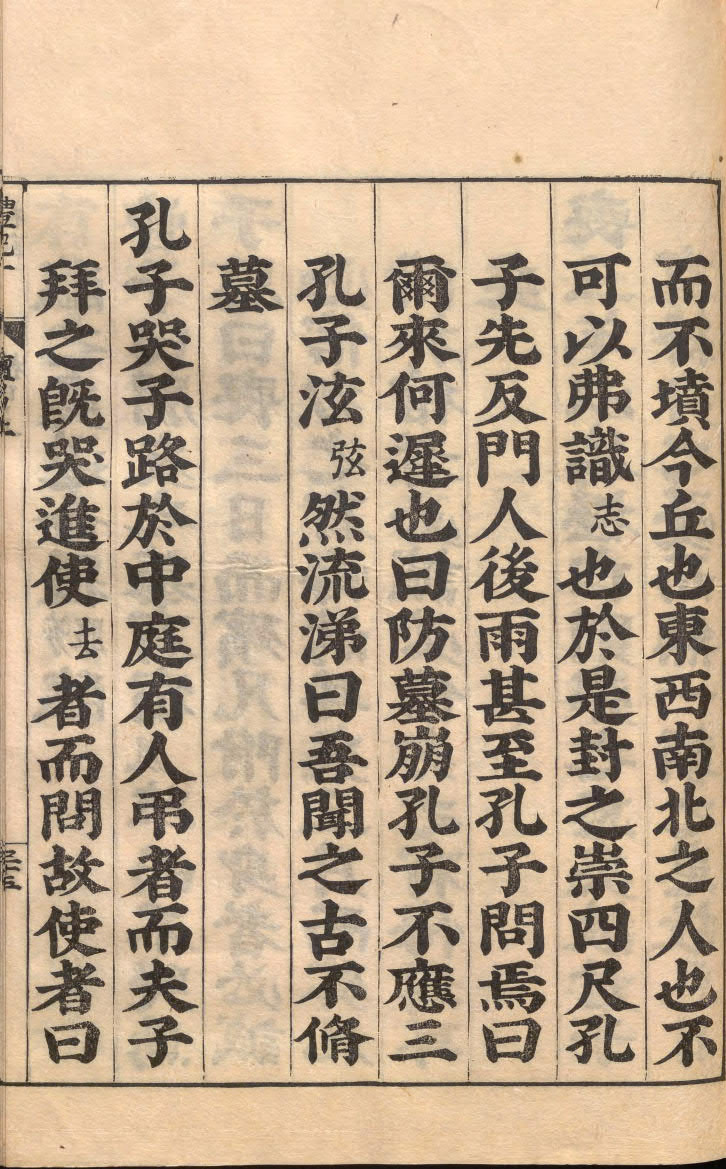 而不墳今丘也東西南北之人也不
可以弗識志也於是封之崇四尺孔
子先反門人後雨甚至孔子問焉曰
爾來何遲也曰防墓崩孔子不應三
孔子泫弦然流涕曰吾聞之古不脩
墓
孔子哭子路於中庭有人弔者而夫子
拜之旣哭進使去者而問故使者曰